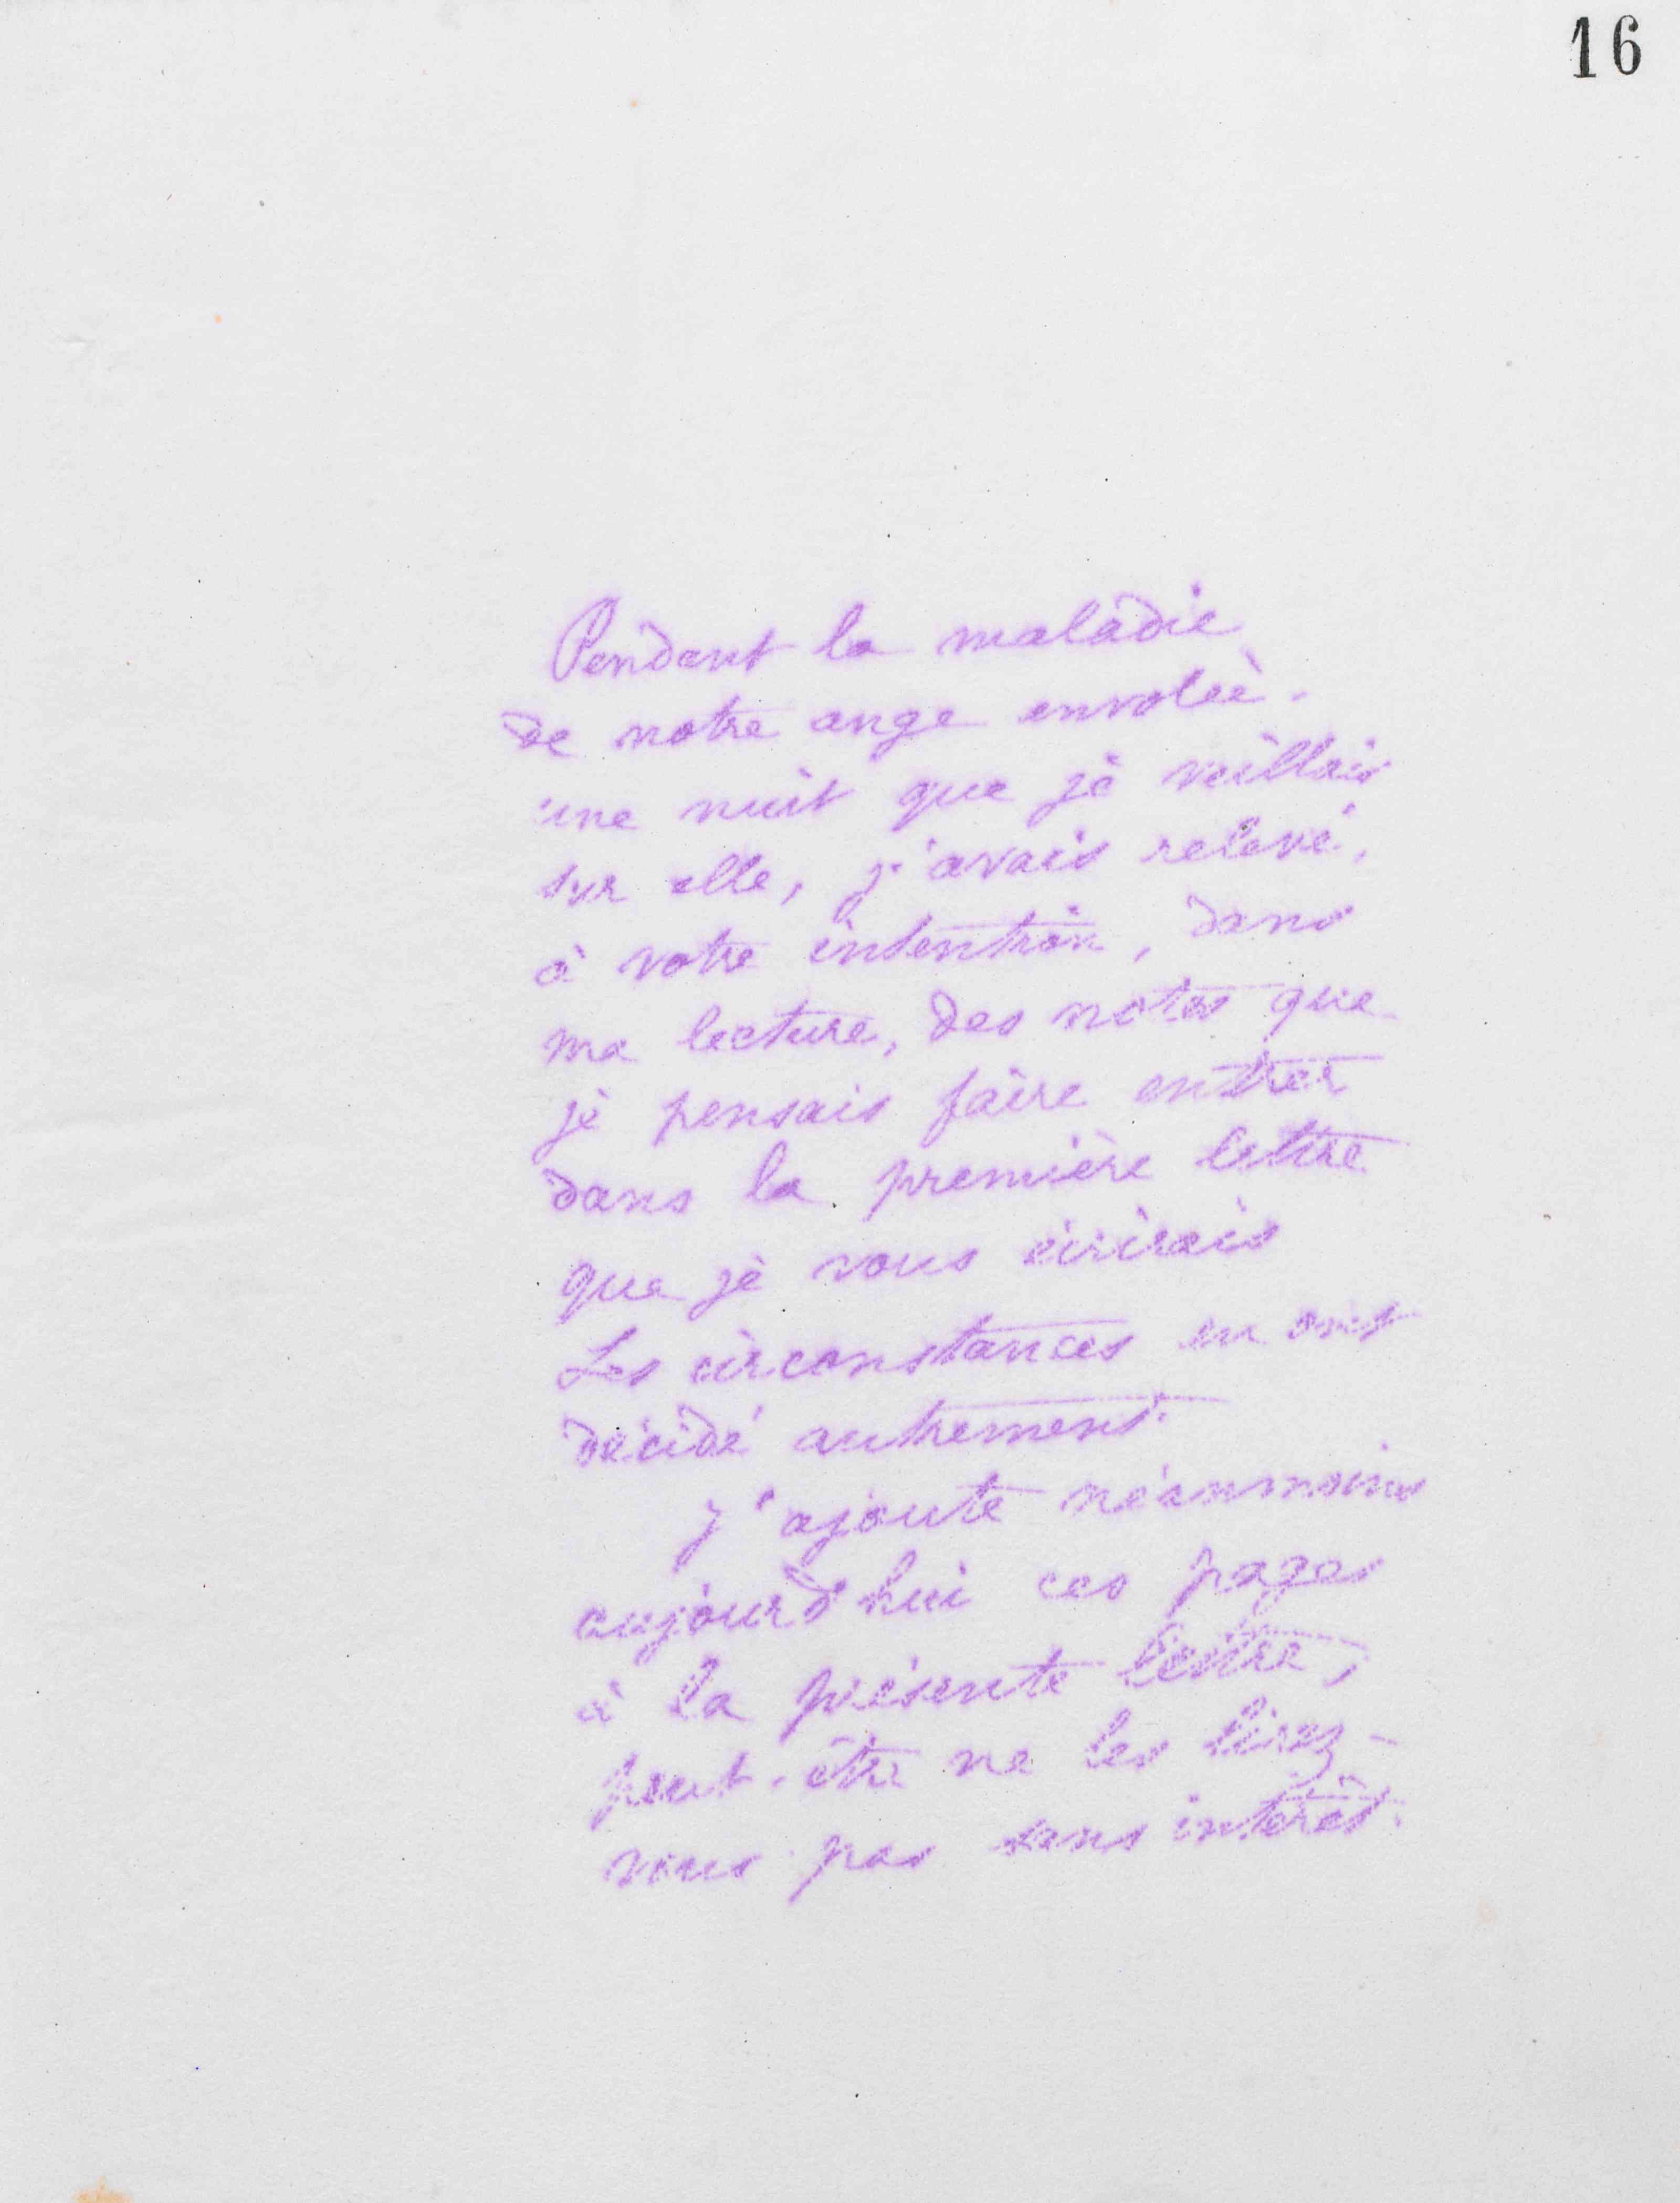 16
Pendant la maladie
de notre ange envolée.
une nuit que je veillais
sur elle, j'avais relevé,
à votre intention, dans
ma lecture, des notes que
je pensais faire entrer
dans la première lettre
que je vous écrirais
Les circonstances en ont
décidé autrement.
J'ajoute néanmoins
aujourd'hui ces pages
à la présente lettre,
peut-être ne les lirez-
vous pas sans intérêt.